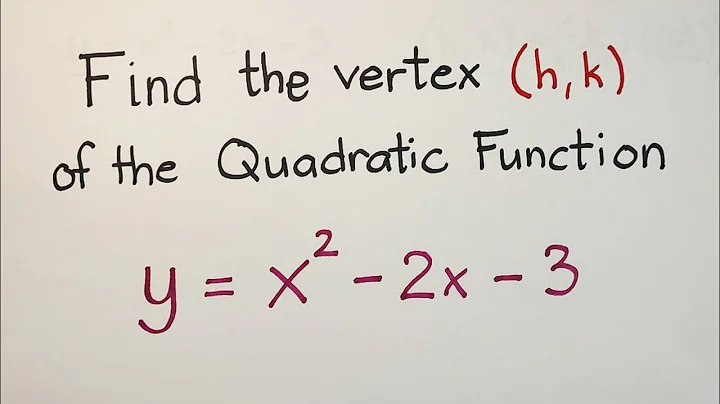 Find the vertex (h,k)
of the Quadratic Function
y = x² - 2x - 3